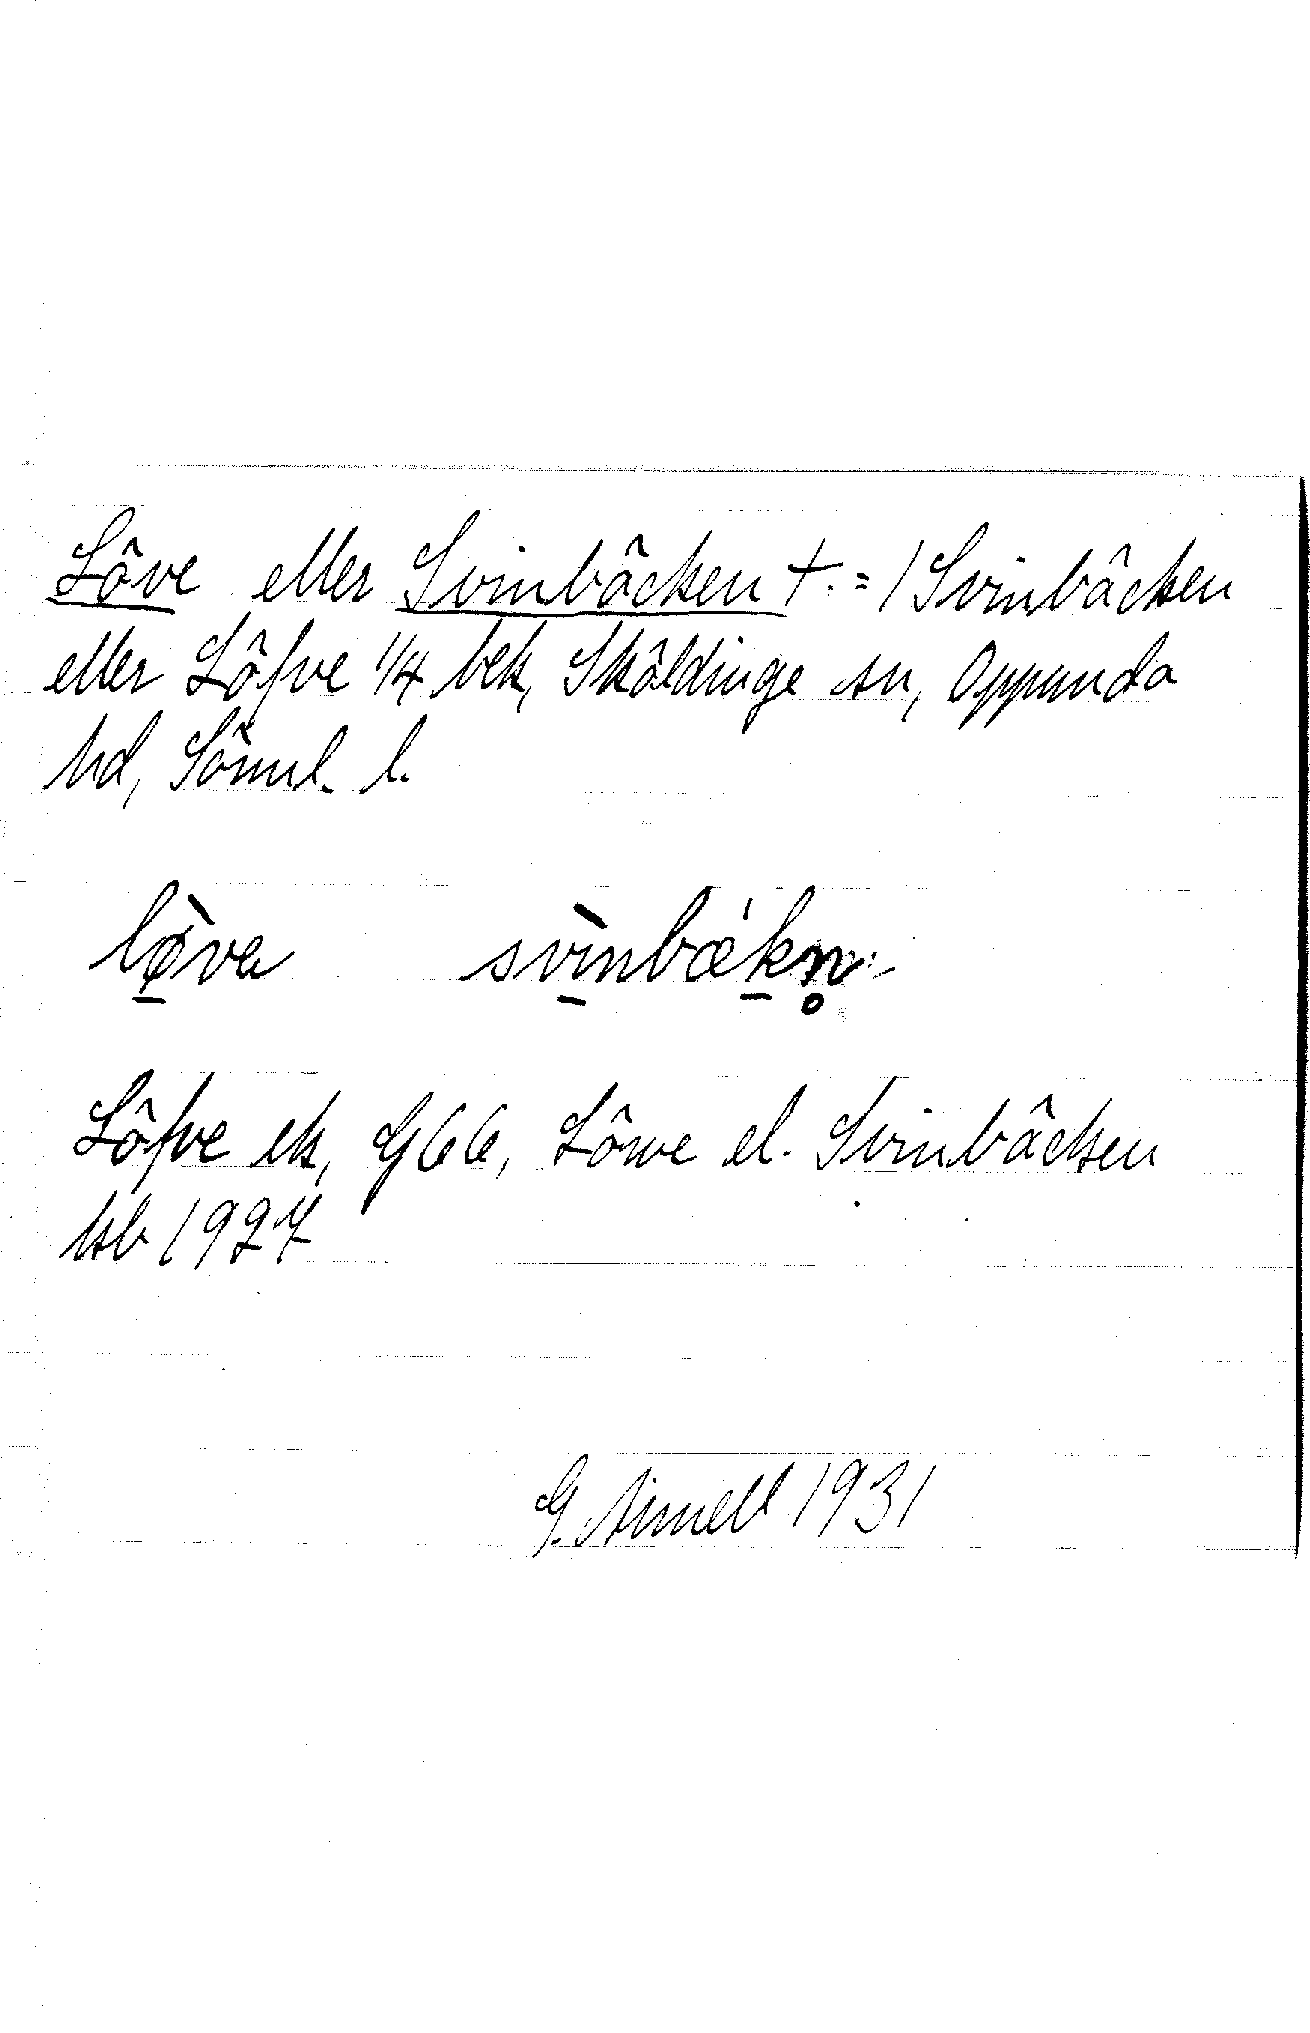 Löve eller Svinbäcken t. = 1 Svinbäcken
eller Löfve 1/4 bek, Sköldinge sn, Oppunda
hd, Söml. l.
lø̀va svìnbǽkn̥
Löfve ek, G66, Löwe el. Svinbäcken
hsb 1927
G. Arnell 1931